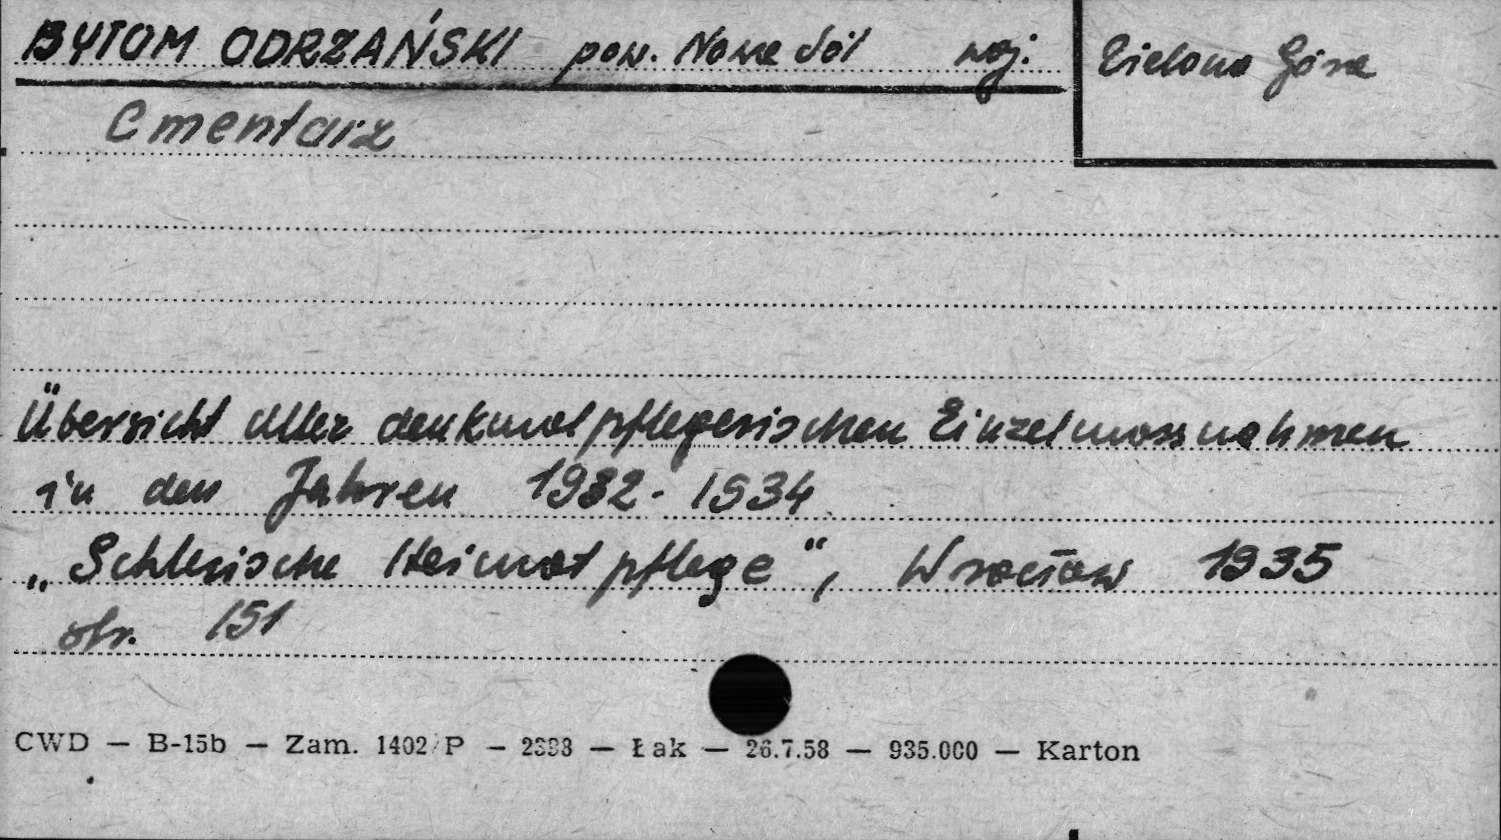 BYTOM ODRZAŃSKI pow. Nowa Sól woj. Zielona Góra
Cmentarz
Übersicht aller denkmalpflegerischen Einzelmassnahmen
in den Jahren 1932-1934
„Schlesische Heimatpflege", Wrocław 1935
str. 151
CWD — B-15b — Zam. 1402/P — — Łak — 26.7.58 — 935.000 — Karton